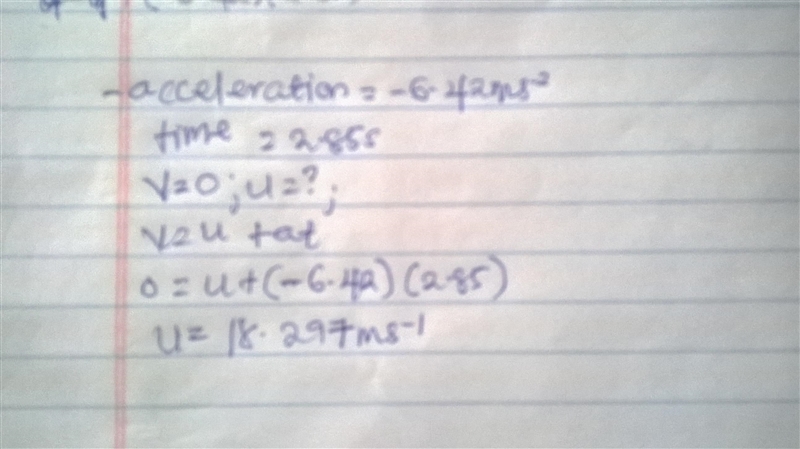 -acceleration = -6.42ms⁻²
time = 2.85s
V=0; u=?;
V=u +at
0 = u+(-6.42)(2.85)
u= 18.297ms⁻¹